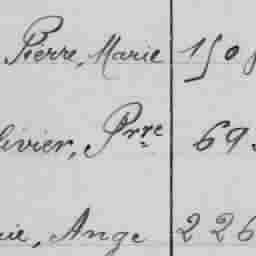 Pierre, Marie 150
livier, Prre 69
rie, Ange 226